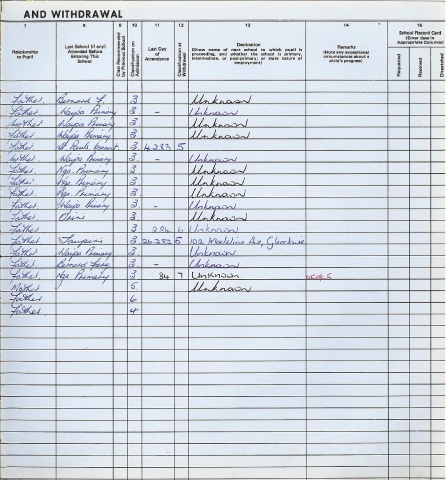 AND WITHDRAWAL
7 8 9 10 11 12 13 14 15
Relationship to Pupil
Last School (if any) Attended Before Entering This School
Class Recommended by Previous School
Classification at Admission
Last Day of Attendance
Classification at Withdrawal
Destination
(Show name of next school to which pupil is proceeding, and whether the school is primary, intermediate, or post-primary; or state nature of employment)
Remarks
(Note any exceptional circumstances about a child's progress)
School Record Card
(Enter date in Appropriate Column)
Requested
Received
Dispatched
Father Bernard F. 3 Unknown
Father Waipa Primary 3 – Unknown
Mother Waipa Primary 3 Unknown
Father Waipa Primary 3 Unknown
Father St Pauls Convent 3 4.2.83 5
Mother Waipa Primary 3 – Unknown
Father Nga. Primary 3 Unknown
Father Nga. Primary 3 Unknown
Father Nga. Primary 3 Unknown
Father Waipa Primary 3 – Unknown
Father 3 Unknown
Father 3 2.84 6 Unknown
Father 3 26.2.82 5 102 Madeline Ave, Glenview
Father Waipa Primary 3 Unknown
Father Bernard Ferg. 3 – Unknown
Father Nga. Primary 3 84 7 Unknown
Mother 5 Unknown
Father 6
Father 4